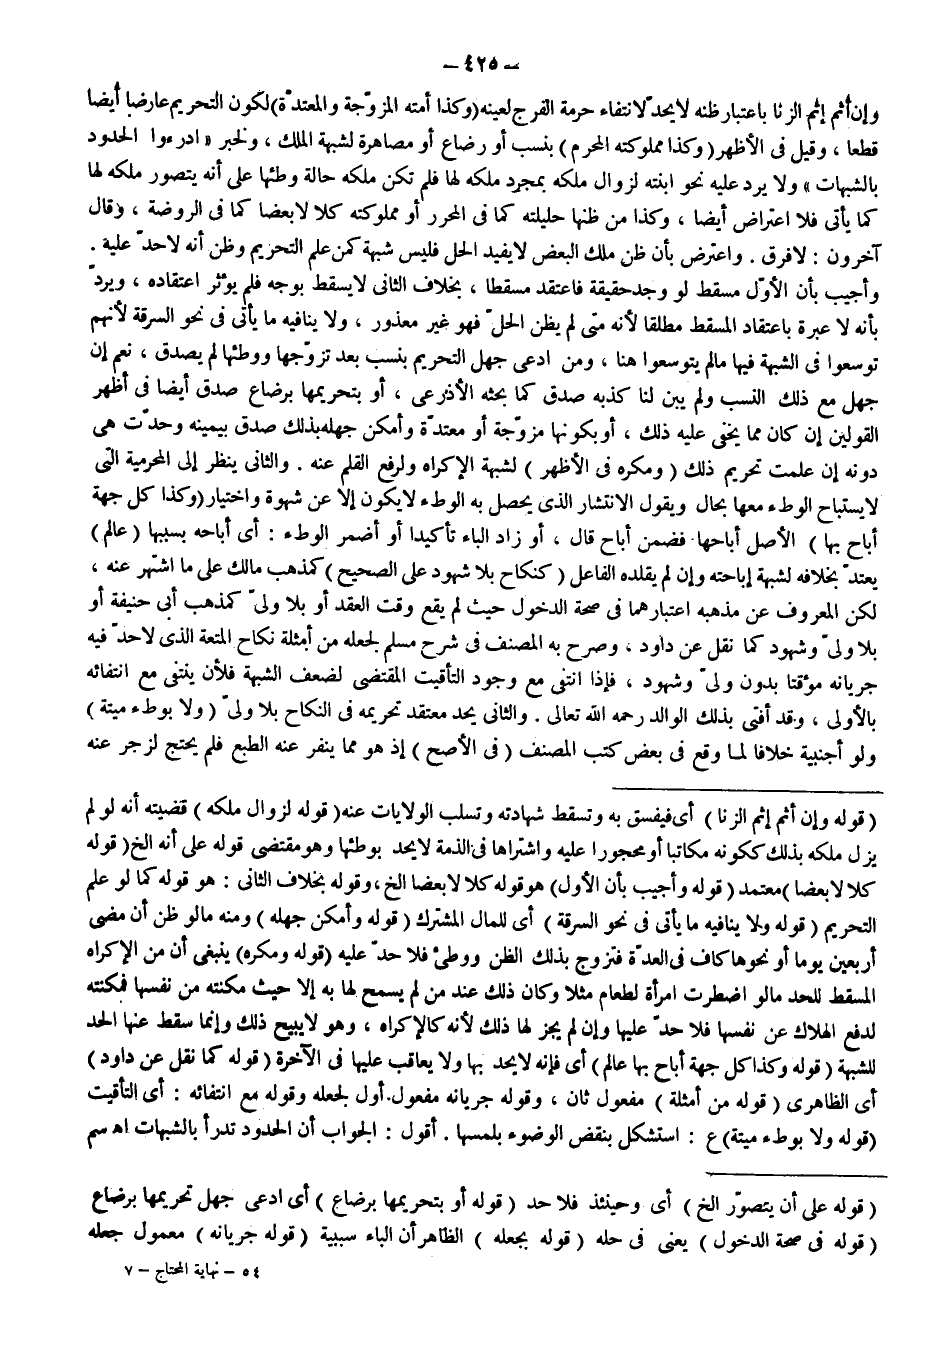 — ٤٢٥ —
وإن أثم إثم الزنا باعتبار ظنه لا يحدّ لانتفاء حرمة الفرج لعينه (وكذا أمته المزوّجة والمعتدّة) لكون التحريم عارضا أيضا
قطعا ، وقيل فى الأظهر (وكذا مملوكته المحرم) بنسب أو رضاع أو مصاهرة لشبهة الملك ، ولخبر « ادرءوا الحدود
بالشبهات » ولا يرد عليه نحو ابنته لزوال ملكه بمجرد ملكه لها فلم تكن ملكه حالة وطئها على أنه يتصور ملكه لها
كما يأتى فلا اعتراض أيضا ، وكذا من ظنها حليلته كما فى المحرر أو مملوكته كلا لابعضا كما فى الروضة ، وقال
آخرون : لافرق . واعترض بأن ظن ملك البعض لايفيد الحل فليس شبهة كمن علم التحريم وظن أنه لاحدّ عليه .
وأجيب بأن الأوّل مسقط لو وجد حقيقة فاعتقد مسقطا ، بخلاف الثانى لايسقط بوجه فلم يؤثر اعتقاده ، ويردّ
بأنه لا عبرة باعتقاد المسقط مطلقا لأنه متى لم يظن الحلّ فهو غير معذور ، ولا ينافيه ما يأتى فى نحو السرقة لأنهم
توسعوا فى الشبهة فيها مالم يتوسعوا هنا ، ومن ادعى جهل التحريم بنسب بعد تزوّجها ووطئها لم يصدق ، نعم إن
جهل مع ذلك النسب ولم يبن لنا كذبه صدق كما بحثه الأذرعى ، أو بتحريمها برضاع صدق أيضا فى أظهر
القولين إن كان مما يخفى عليه ذلك ، أو بكونها مزوّجة أو معتدّة وأمكن جهله بذلك صدق بيمينه وحدّت هى
دونه إن علمت تحريم ذلك ( ومكره فى الأظهر ) لشبهة الإكراه ولرفع القلم عنه . والثانى ينظر إلى المحرمية التى
لايستباح الوطء معها بحال ويقول الانتشار الذى يحصل به الوطء لايكون إلا عن شهوة واختيار (وكذا كل جهة
أباح بها ) الأصل أباحها فضمن أباح قال ، أو زاد الباء تأكيدا أو أضمر الوطء : أى أباحه بسببها ( عالم )
يعتدّ بخلافه لشبهة إباحته وإن لم يقلده الفاعل ( كنكاح بلا شهود على الصحيح ) كمذهب مالك على ما اشتهر عنه ،
لكن المعروف عن مذهبه اعتبارهما فى صحة الدخول حيث لم يقع وقت العقد أو بلا ولىّ كمذهب أبى حنيفة أو
بلا ولىّ وشهود كما نقل عن داود ، وصرح به المصنف فى شرح مسلم لجعله من أمثلة نكاح المتعة الذى لاحدّ فيه
جريانه مؤقتا بدون ولىّ وشهود ، فإذا انتفى مع وجود التأقيت المقتضى لضعف الشبهة فلأن ينتفى مع انتفائه
بالأولى ، وقد أفتى بذلك الوالد رحمه الله تعالى . والثانى يحد معتقد تحريمه فى النكاح بلا ولىّ ( ولا بوطء ميتة )
ولو أجنبية خلافا لما وقع فى بعض كتب المصنف ( فى الأصح ) إذ هو مما ينفر عنه الطبع فلم يحتج لزجر عنه
( قوله وإن أثم إثم الزنا ) أى فيفسق به وتسقط شهادته وتسلب الولايات عنه ( قوله لزوال ملكه ) قضيته أنه لو لم
يزل ملكه بذلك ككونه مكاتبا أو محجورا عليه واشتراها فى الذمة لايحد بوطئها وهو مقتضى قوله على أنه الخ ( قوله
كلا لابعضا ) معتمد ( قوله وأجيب بأن الأول) هو قوله كلا لابعضا الخ ، وقوله بخلاف الثانى : هو قوله كما لو علم
التحريم ( قوله ولا ينافيه ما يأتى فى نحو السرقة ) أى للمال المشترك ( قوله وأمكن جهله ) ومنه مالو ظن أن مضى
أربعين يوما أو نحوها كاف فى العدّة فتزوج بذلك الظن ووطئ فلا حدّ عليه (قوله ومكره) ينبغى أن من الإكراه
المسقط للحد مالو اضطرت امرأة لطعام مثلا وكان ذلك عند من لم يسمح لها به إلا حيث مكنته من نفسها فمكنته
لدفع الهلاك عن نفسها فلا حدّ عليها وإن لم يجز لها ذلك لأنه كالإكراه ، وهو لايبيح ذلك وإنما سقط عنها الحد
للشبهة ( قوله وكذا كل جهة أباح بها عالم ) أى فإنه لايحد بها ولا يعاقب عليها فى الآخرة ( قوله كما نقل عن داود )
أى الظاهرى ( قوله من أمثلة ) مفعول ثان ، وقوله جريانه مفعول أول لجعله وقوله مع انتفائه : أى التأقيت
(قوله ولا بوطء ميتة) ع : استشكل بنقض الوضوء بلمسها . أقول : الجواب أن الحدود تدرأ بالشبهات اه سم
( قوله على أن يتصوّر الخ ) أى وحينئذ فلا حد ( قوله أو بتحريمها برضاع ) أى ادعى جهل تحريمها برضاع
( قوله فى صحة الدخول ) يعنى فى حله ( قوله بجعله ) الظاهر أن الباء سببية ( قوله جريانه ) معمول جعله
٥٤ – نهاية المحتاج – ٧